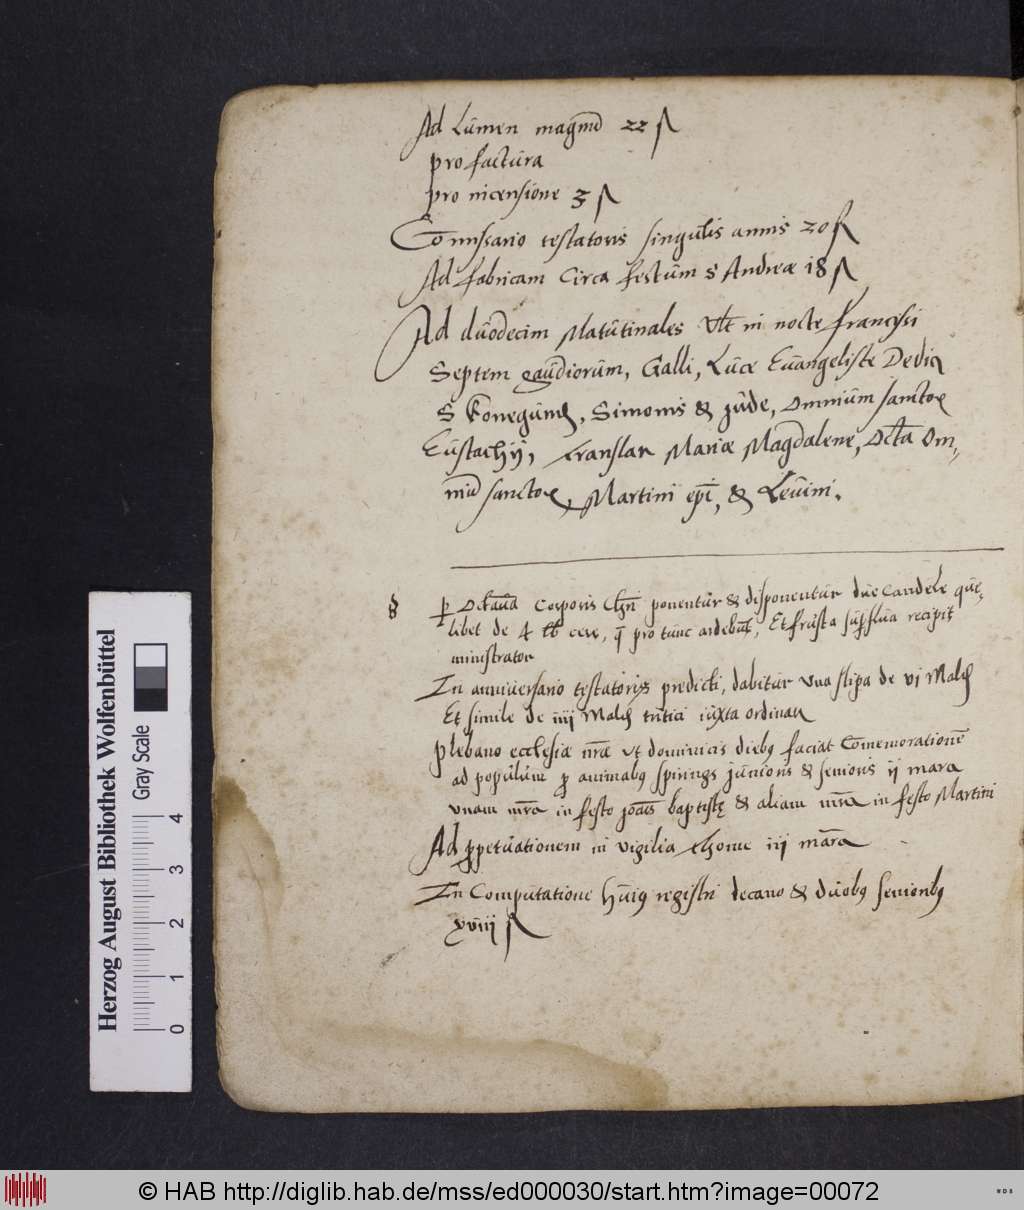 Ad lumen magnũ 22 ß
pro factura
pro incensione 3 ß
Com̃issario testatoris singulis annis 20 ß
Ad fabricam circa festum S Andreæ 18 ß
Ad duodecim Matutinales Vlt̃ in nocte francisci
Septem gaudiorum, Galli, Luce Euangeliste Dedic
S Konegund, Simonis & jude, omnium sanctoꝝ
Eustachij, translac̃ Mariæ Magdalene, Octa Om
niũ sanctoꝝ, Martini ep̃i, & Leuini.
§ ꝑ octaua Corporis Chr̃i ponentur & disponentur due Candele que
libet de 4 lb cere, q̃ pro tunc ardebũt, Et frusta suꝑflua recipit
ministrator
In anniuersario testatoris predicti, dabitur vna stipa de vj Malẽ
Et simile de iiij Malẽ tritici iuxta ordinañ
Plebano ecclesiæ nr̃æ vt dominicis diebꝯ faciat Com̃emorationẽ
ad populum ꝓ animabꝯ Spirings junioris & senioris ij marca
vnam mr̃a in festo joãis baptistę & aliam mr̃a in festo Martini
Ad ꝑpetuationem in vigilia Thome iij mar̃a
In Computatione huiꝯ registri decano & duobꝯ senioribꝯ
xviij ß
Herzog August Bibliothek Wolfenbüttel
Gray Scale
0 1 2 3 4
© HAB http://diglib.hab.de/mss/ed000030/start.htm?image=00072